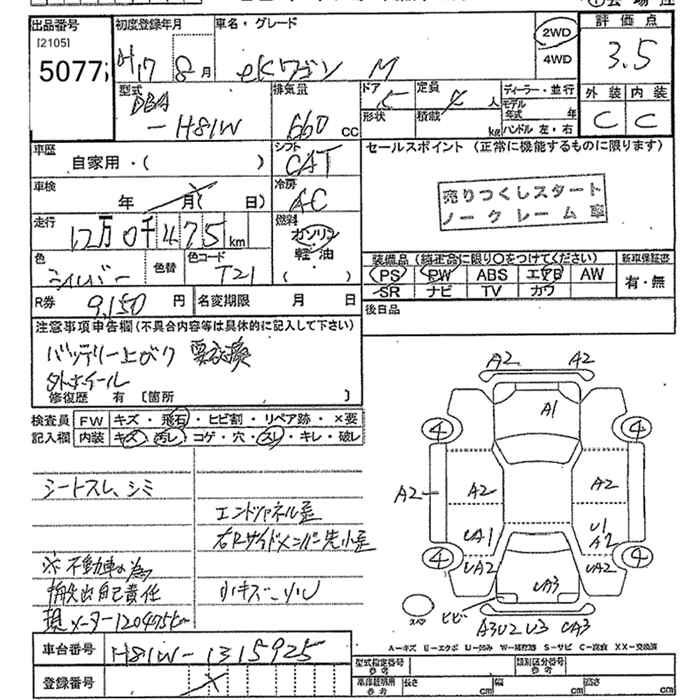 出品番号
[2105]
5077
初度登録年月
H17年8月
車名・グレード
eKワゴン M
2WD
4WD
評価点
3.5
外装 内装
C C
型式
DBA
-H81W
排気量
660 cc
ドア
5
定員
4 人
形状
積載
kg
ディーラー・並行
モデル年式 年
ハンドル 左・右
車歴
自家用・( )
シフト
CAT
冷房
AC
車検
年 月( 日)
走行
12万0千475 km
燃料
ガソリン
軽・油
( )
色
シルバー
色替
色コード
T21
R券 9,150 円
名変期限 月 日
セールスポイント (正常に機能するものに限ります)
売りつくしスタート
ノークレーム車
装備品(純正品に限り○をつけてください)
PS PW ABS エアB AW
SR ナビ TV カワ
新車保証書
有・無
後日品
注意事項申告欄(不具合内容等は具体的に記入して下さい)
バッテリー上がり 要交換
外ホイール
修復歴 有 [箇所 ]
検査員
記入欄
FW キズ・飛石・ヒビ割・リペア跡・×要
内装 キズ・汚レ・コゲ・穴・スレ・キレ・破レ
シートスレ、シミ
エンドパネル歪
右Rサイドメンバー先小歪
※不動車の為
搬出自己責任
現メーター120475km
小キズ・小U
車台番号 H81W-1315925
登録番号
A2 A2
A1
4 4
A2 A2 A2
UA1 U1
A2
4 4
UA2 UA2
UA3
スペア ヒビ
A3U2 U3 UA3
A-キズ E-エクボ U-凹み W-補修跡 S-サビ C-腐食 XX-交換済
型式指定番号
参考
類別区分番号
参考
車庫証明用
参考
長さ cm 幅 cm 高さ cm